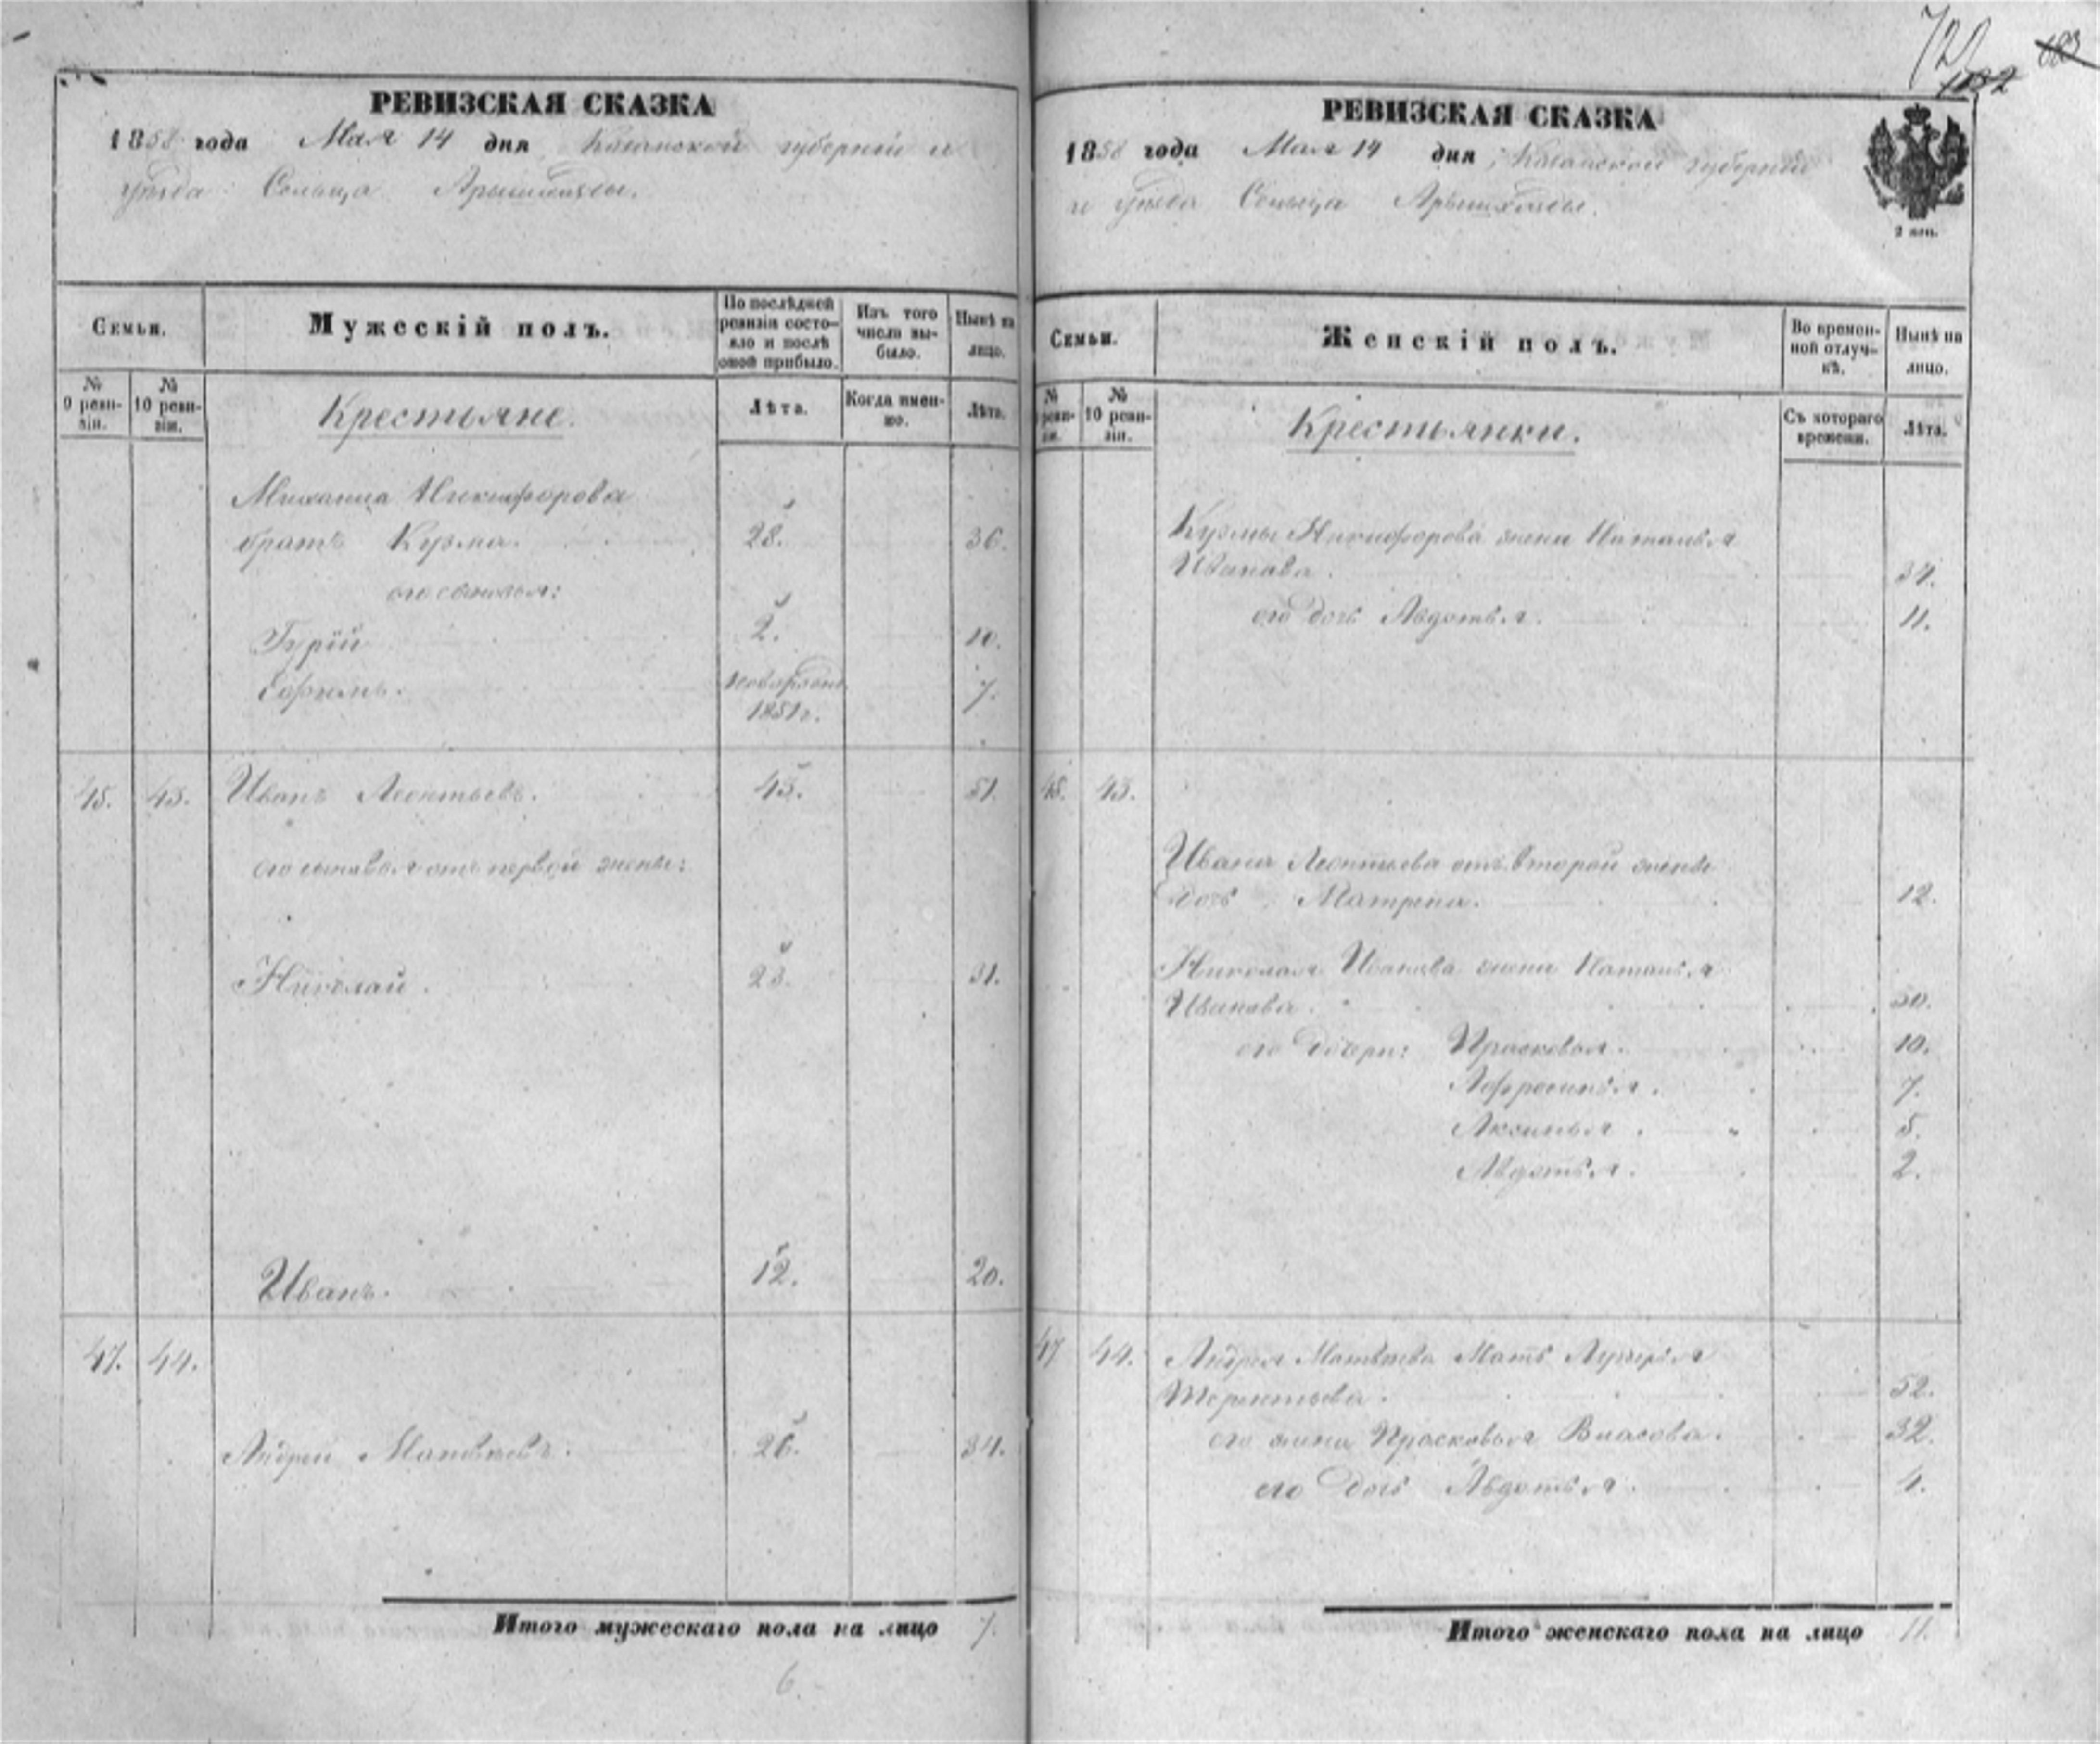 72
1132
683
РЕВИЗСКАЯ СКАЗКА
1858 года Мая 14 дня Казанской губерніи и
уѣзда Сельца Арышхазды.
Семьи.
Мужескій полъ.
По послѣдней
ревизіи состо-
яло и послѣ
оной прибыло.
Изъ того
числа вы-
было.
Нынѣ на
лицо.
№
9 реви-
зіи.
№
10 реви-
зіи.
Крестьяне.
Лѣта.
Когда имен-
но.
Лѣта.
Михаила Никифорова
братъ Кузма. 28. 36.
его сыновья:
Гурій 2. 10.
Софронъ. новорожден 7.
1851 г.
45. 43. Иванъ Леонтьевъ. 43. 51.
его сыновья отъ первой жены:
Николай. 23. 31.
Иванъ. 12. 20.
47. 44.
Андрей Матвѣевъ. 26. 34.
Итого мужескаго пола на лицо 7.
6.
РЕВИЗСКАЯ СКАЗКА
1858 года Мая 14 дня Казанской губерніи
и уѣзда Сельца Арышхазды.
2 коп.
Семьи.
Женскій полъ.
Во времен-
ной отлуч-
кѣ.
Нынѣ на
лицо.
№
реви-
зіи.
№
10 реви-
зіи.
Крестьянки.
Съ котораго
времени.
Лѣта.
Кузмы Никифорова жена Наталья
Иванова. 34.
его дочь Авдотья. 11.
45. 43.
Ивана Леонтьева отъ второй жены
дочь Матрена. 12.
Николая Иванова жена Наталья
Иванова. 30.
его дочери: Прасковья. 10.
Афросинья. 7.
Аксинья. 5.
Авдотья. 2.
47 44. Андрея Матвѣева мать Лукерья
Терентьева. 52.
его жена Прасковья Власова. 32.
его дочь Авдотья. 4.
Итого женскаго пола на лицо 11.